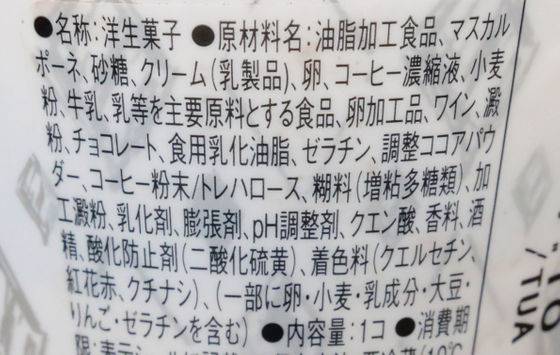 ●名称:洋生菓子 ●原材料名:油脂加工食品、マスカル
ポーネ、砂糖、クリーム(乳製品)、卵、コーヒー濃縮液、小麦
粉、牛乳、乳等を主要原料とする食品、卵加工品、ワイン、澱
粉、チョコレート、食用乳化油脂、ゼラチン、調整ココアパウ
ダー、コーヒー粉末/トレハロース、糊料(増粘多糖類)、加
工澱粉、乳化剤、膨張剤、pH調整剤、クエン酸、香料、酒
精、酸化防止剤(二酸化硫黄)、着色料(クエルセチン、
紅花赤、クチナシ)、(一部に卵・小麦・乳成分・大豆・
りんご・ゼラチンを含む) ●内容量:1コ ●消費期